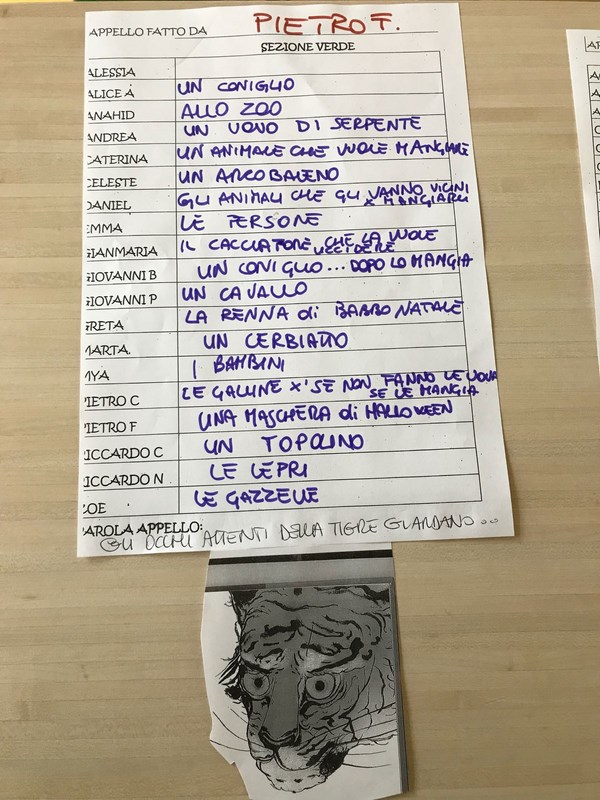 APPELLO FATTO DA PIETRO F.
SEZIONE VERDE
ALESSIA
ALICE A UN CONIGLIO
ANAHID ALLO ZOO
ANDREA UN UOVO DI SERPENTE
CATERINA UN ANIMALE CHE VUOLE MANGIARE
CELESTE UN ARCOBALENO
DANIEL GLI ANIMALI CHE GLI VANNO VICINI
X MANGIARLI
EMMA LE PERSONE
GIANMARIA IL CACCIATORE CHE LA VUOLE
UCCIDERE
GIOVANNI B UN CONIGLIO... DOPO LO MANGIA
GIOVANNI P UN CAVALLO
GRETA LA RENNA di BABBO NATALE
MARTA. UN CERBIATTO
MYA I BAMBINI
PIETRO C LE GALLINE X' SE NON FANNO LE UOVA
SE LE MANGIA
PIETRO F UNA MASCHERA di HALLOWEEN
RICCARDO C UN TOPOLINO
RICCARDO N LE LEPRI
ZOE LE GAZZELLE
PAROLA APPELLO:
GLI OCCHI ATTENTI DELLA TIGRE GUARDANO...